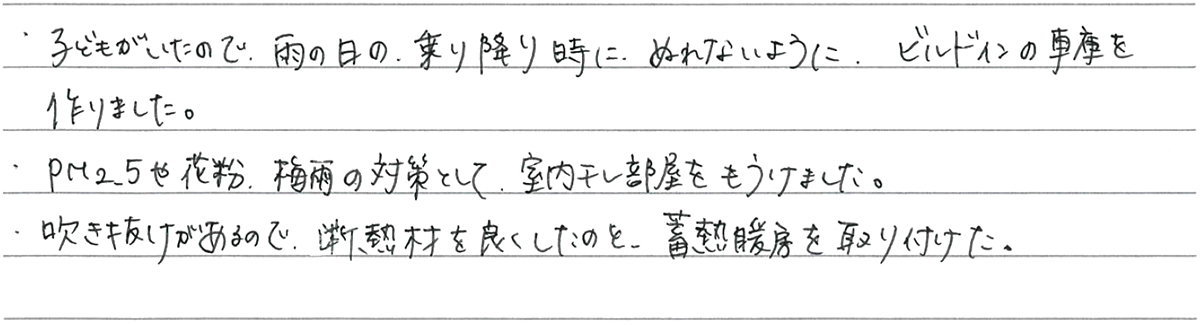 ・子どもがいたので、雨の日の、乗り降り時に、ぬれないように、ビルドインの車庫を
作りました。
・PM2.5や花粉、梅雨の対策として、室内干し部屋をもうけました。
・吹き抜けがあるので、断熱材を良くしたのと、蓄熱暖房を取り付けた。